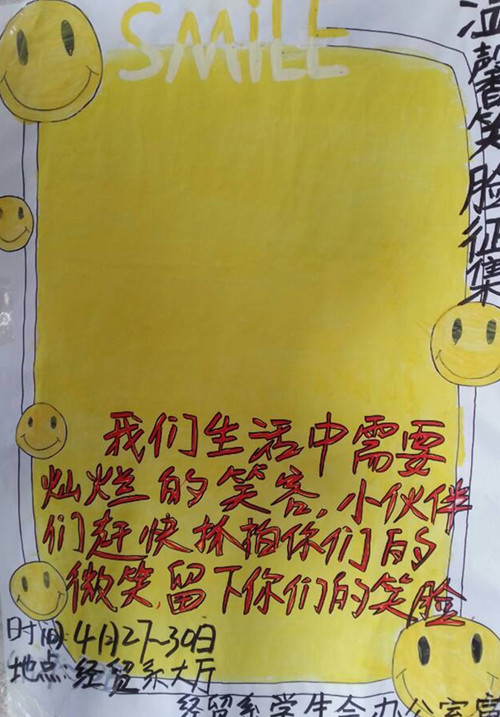 SMILE
温馨笑脸征集
我们生活中需要
灿烂的笑容,小伙伴
们赶快抓拍你们的
微笑,留下你们的笑脸
时间:4月27~30日
地点:经贸系大厅
经贸系学生会办公室宣